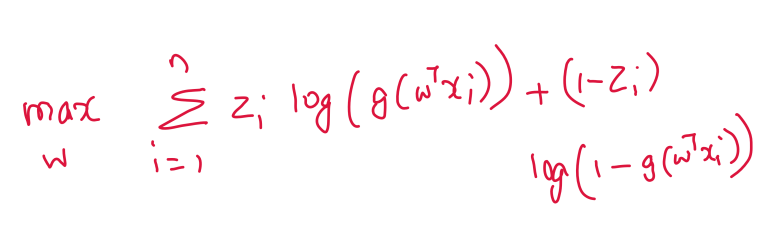 max_w ∑_{i=1}^{n} z_i log(g(w^T x_i)) + (1-z_i)
log(1-g(w^T x_i))